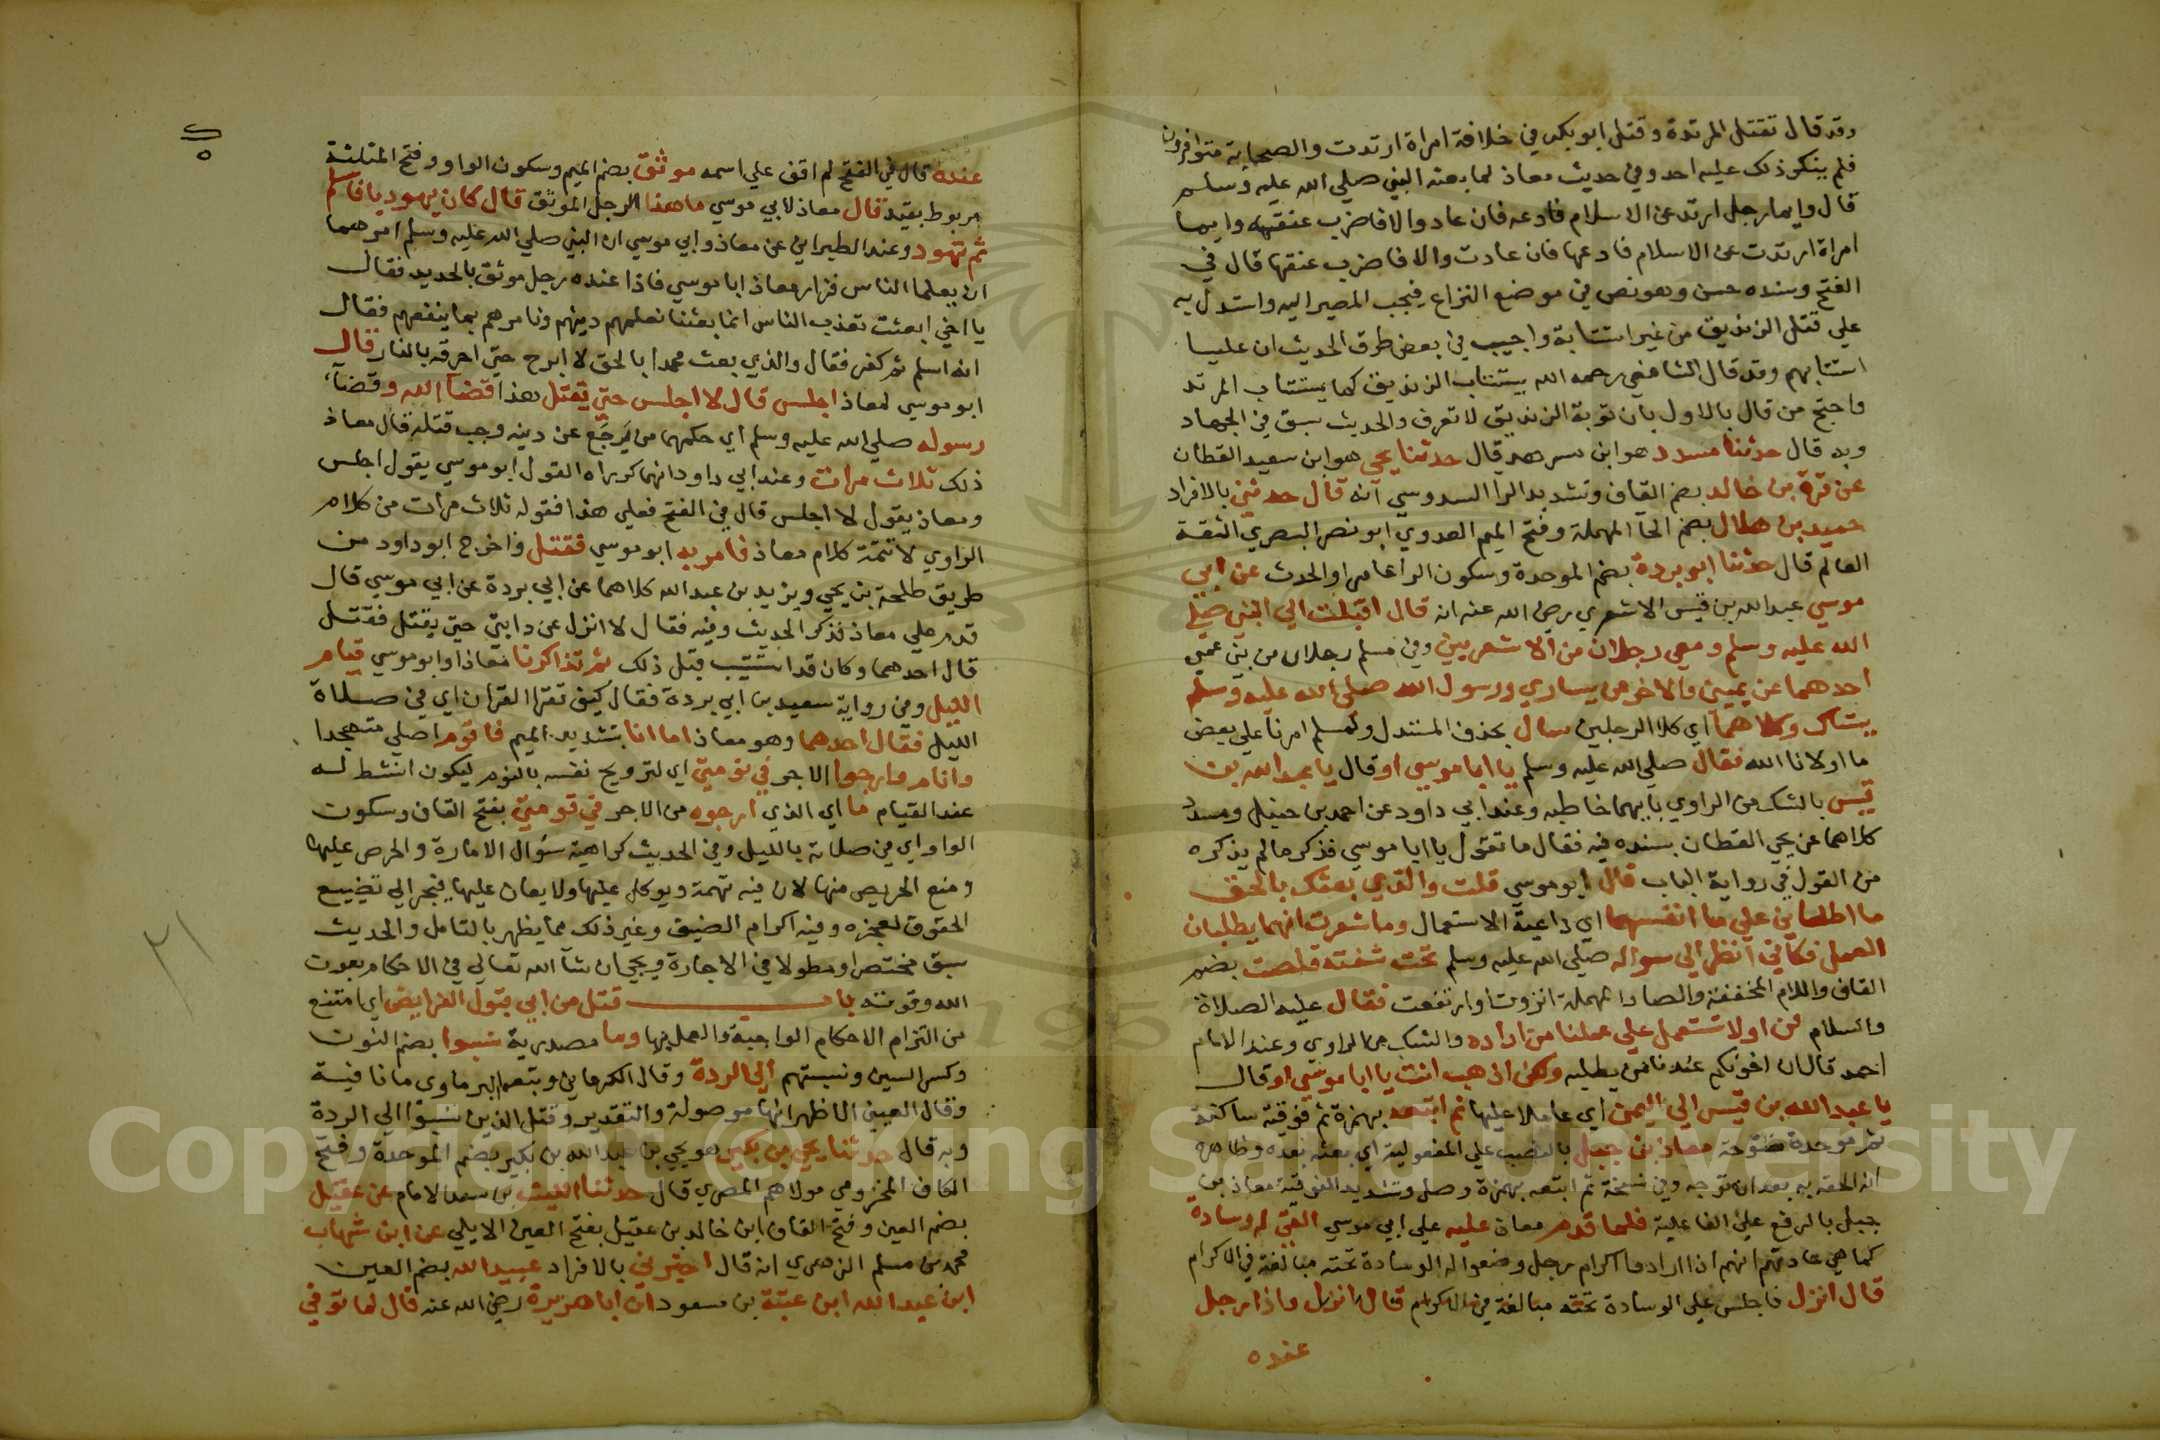 وقد قال تقتل المرتدة وقتل ابو بكر في خلافة امراة ارتدت والصحابة متوافرون
فلم ينكر ذلك عليه احد وفي حديث معاذ لما بعثه النبي صلي الله عليه وسلم
قال وايما رجل ارتد عن الاسلام فادعه فان عاد والا فاضرب عنقه وايما
امراة ارتدت عن الاسلام فادعها فان عادت والا فاضرب عنقها قال في
الفتح وسنده حسن وهو نص في موضع النزاع فيجب المصير اليه واستدل به
علي قتل الزنديق من غير استتابة واجيب في بعض طرق الحديث ان عليا
استتابهم وقد قال الشافعي رحمه الله يستتاب الزنديق كما يستتاب المرتد
واحتج من قال بالاول بان توبة الزنديق لا تعرف والحديث سبق في الجهاد
وبه قال حدثنا مسدد هو ابن مسرهد قال حدثنا يحي هو ابن سعيد القطان
عن قرة بن خالد بضم القاف وتشديد الرا السدوسي انه قال حدثني بالافراد
حميد بن هلال بضم الحآ المهملة وفتح الميم العدوي ابو نصر البصري الثقة
العالم قال حدثنا ابو بردة بضم الموحدة وسكون الرا عامر او الحرث عن ابي
موسي عبد الله بن قيس الاشعري رضي الله عنه انه قال اقبلت الي النبي صلي
الله عليه وسلم ومعي رجلان من الاشعريين وفي مسلم رجلان من بني عمي
احدهما عن يميني والاخر عن يساري ورسول الله صلي الله عليه وسلم
يستاك وكلاهما اي كلا الرجلين سال بحذف المسئول ولمسلم امرنا علي بعض
ما اولانا الله فقال صلي الله عليه وسلم يا ابا موسي او قال يا عبد الله بن
قيس بالشك من الراوي بايهما خاطبه وعند ابي داود عن احمد بن حنبل ومسدد
كلاهما عن يحي القطان بسنده فيه فقال ما تقول يا ابا موسي فذكر ما لم يذكره
من القول في رواية الباب قال ابو موسي قلت والذي بعثك بالحق
ما اطلعاني علي ما انفسهما اي داعية الاستعمال وما شعرت انهما يطلبان
العمل فكاني انظر الي سواكه صلي الله عليه وسلم تحت شفته قلصت بضم
القاف واللام المخففة والصاد المهملة انزوت او ارتفعت فقال عليه الصلاة
والسلام لن او لا نستعمل علي عملنا من اراده والشك من الراوي وعند الامام
احمد قال ان اخونكم عندنا من يطلبه ولكن اذهب انت يا ابا موسي او قال
يا عبد الله بن قيس الي اليمن اي عاملا عليها ثم اتبعه بهمزة ثم فوقية ساكنة
ثم موحدة مفتوحة معاذ بن جبل بالنصب علي المفعولية اي بعثه بعده وظاهره
انه الحقه به بعد ان توجه وفي نسخة ثم اتبعه بهمزة وصل وتشديد الفوقية معاذ بن
جبل بالرفع علي الفاعلية فلما قدم معاذ عليه علي ابي موسي القي له وسادة
كما هي عادتهم انهم اذا ارادوا اكرام رجل وضعوا له الوسادة تحته مبالغة في الاكرام
قال انزل فاجلس علي الوسادة تحته مبالغة في الاكرام قال انزل واذا رجل
عنده
عنده قال في الفتح لم اقف علي اسمه موثق بضم الميم وسكون الواو وفتح المثلثة
مربوط بقيد قال معاذ لابي موسي ما هذا الرجل الموثق قال كان يهوديا فاسلم
ثم تهود وعند الطبراني عن معاذ وابي موسي ان النبي صلي الله عليه وسلم امرهما
ان يعلما الناس فزار معاذ ابا موسي فاذا عنده رجل موثق بالحديد فقال
يا اخي ابعثت تعذب الناس انما بعثنا نعلمهم دينهم ونامرهم بما ينفعهم فقال
انه اسلم ثم كفر فقال والذي بعث محمدا بالحق لا ابرح حتي احرقه بالنار قال
ابو موسي لمعاذ اجلس قال لا اجلس حتي يقتل هذا قضآ الله وقضآء
رسوله صلي الله عليه وسلم اي حكمهما من رجع عن دينه وجب قتله قال معاذ
ذلك ثلاث مرات وعند ابي داود انهما كررا القول ابو موسي يقول اجلس
ومعاذ يقول لا اجلس قال في الفتح فعلي هذا فقوله ثلاث مرات من كلام
الراوي لا تتمة كلام معاذ فامر به ابو موسي فقتل واخرج ابو داود من
طريق طلحة بن يحي ويزيد بن عبد الله كلاهما عن ابي بردة عن ابي موسي قال
قدم علي معاذ فذكر الحديث وفيه فقال لا انزل عن دابتي حتي يقتل فقتل
قال احدهما وكان قد استتيب قبل ذلك ثم تذاكرنا معاذ وابو موسي قيام
الليل وفي رواية سعيد بن ابي بردة فقال كيف تقرا القران اي في صلاة
الليل فقال احدهما وهو معاذ اما انا بتشديد الميم فاقوم اصلي متهجدا
وانام وارجوا الاجر في نومتي اي لترويح نفسه بالنوم ليكون انشط له
عند القيام ما اي الذي ارجوه من الاجر في قومتي بفتح القاف وسكون
الواو اي في صلاته بالليل وفي الحديث كراهية سؤال الامارة والحرص عليها
ومنع الحريص منها لان فيه تهمة ويوكل عليها ولا يعان عليها فينجر الي تضييع
الحقوق لعجزه وفيه اكرام الضيف وغير ذلك مما يظهر بالتامل والحديث
سبق مختصرا ومطولا في الاجارة ويجي ان شآ الله تعالي في الاحكام بعون
الله وقوته باب قتل من ابي قبول الفرايض اي امتنع
من التزام الاحكام الواجبة والعمل بها وما مصدرية نسبوا بضم النون
وكسر السين ونسبتهم الي الردة وقال الكرماني وتبعه البرماوي ما نافية
وقال العيني الاظهر انها موصولة والتقدير وقتل الذين نسبوا الي الردة
وبه قال حدثنا يحي بن بكير هو يحي بن عبد الله بن بكير بضم الموحدة وفتح
الكاف المخزومي مولاهم المصري قال حدثنا الليث بن سعد الامام عن عقيل
بضم العين وفتح القاف ابن خالد بن عقيل بفتح العين الايلي عن ابن شهاب
محمد بن مسلم الزهري انه قال اخبرني بالافراد عبيد الله بضم العين
ابن عبد الله ابن عتبة بن مسعود ان ابا هريرة رضي الله عنه قال لما توفي
Copyright © King Saud University
1957